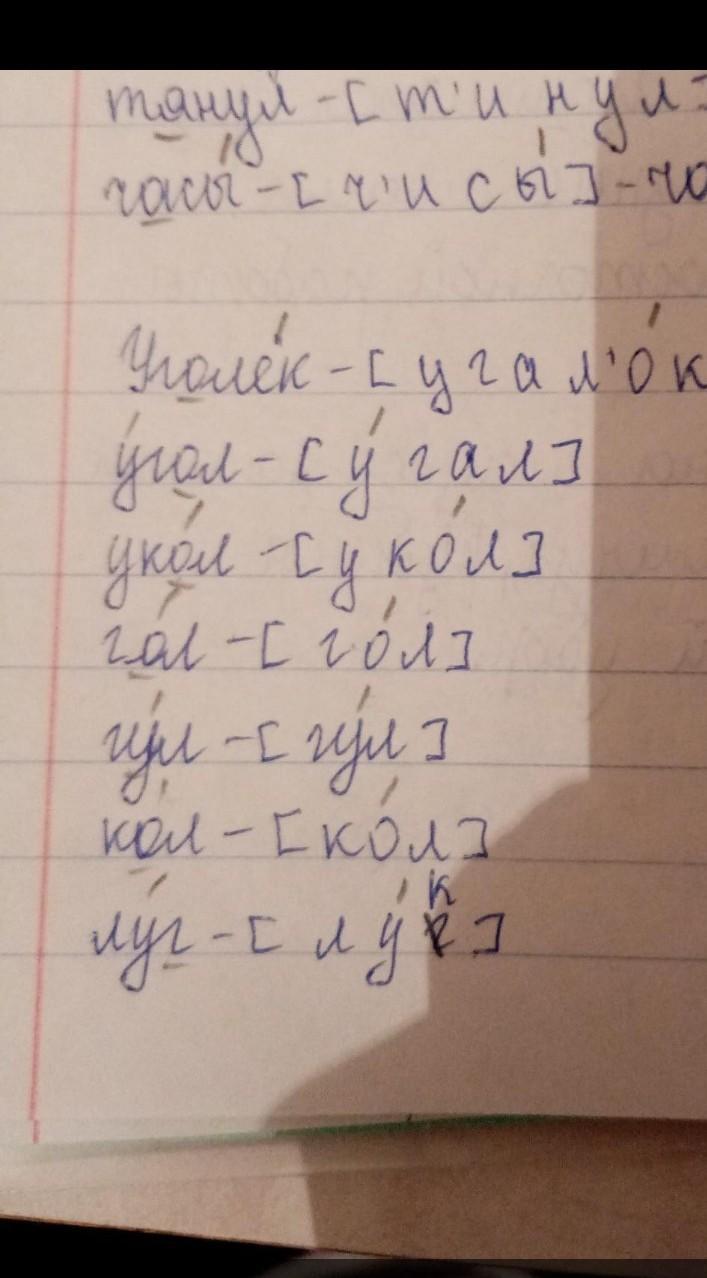 тянул - [т'и нул]
часы́ - [ч'и сы́] - ча
Уголёк - [у га л'о́ к
у́гол - [у́ га л]
уко́л - [у ко́л]
го́л - [го́л]
гу́л - [гу́л]
ко́л - [ко́л]
лу́г - [лу́ к]